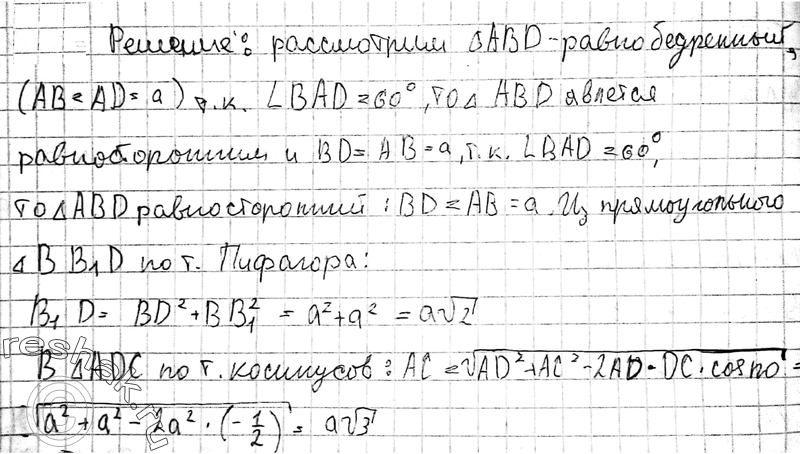 Решение: рассмотрим ΔABD - равнобедренный,
(AB = AD = a) т.к. ∠BAD = 60°, то Δ ABD явлется
равносторонним и BD = AB = a, т.к. ∠BAD = 60°,
то Δ ABD равносторонний : BD = AB = a. Из прямоугольного
Δ B B₁ D по т. Пифагора:
B₁ D = BD² + BB₁² = a² + a² = a√2
В ΔADC по т. косинусов : AC = √AD² + AC² - 2AD · DC · cos120° =
√a² + a² - 2a² · (-1/2) = a√3
reshak.ru